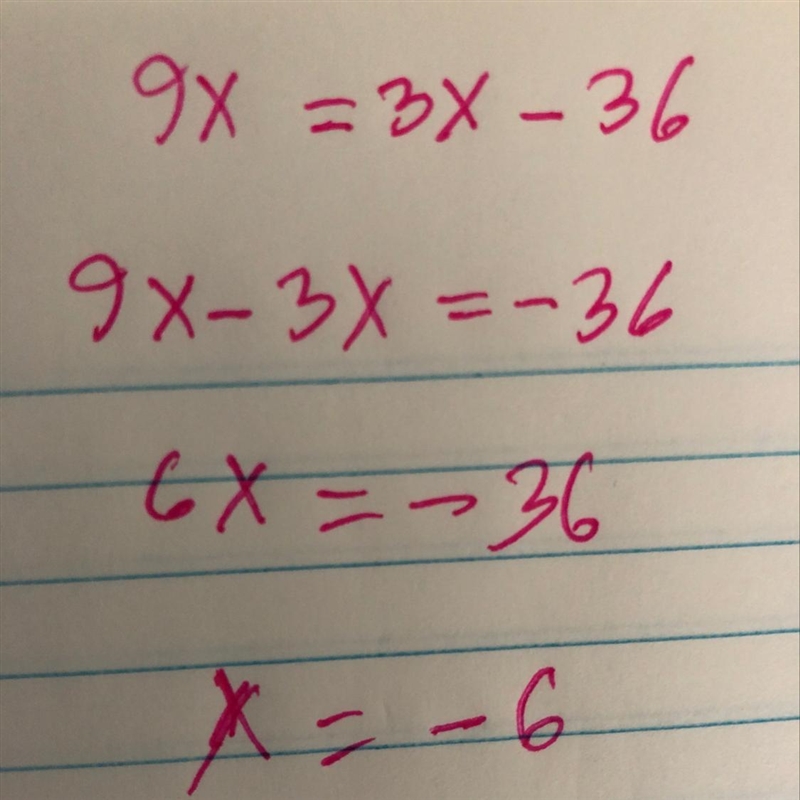 9x = 3x - 36
9x - 3x = -36
6x = -36
x = -6